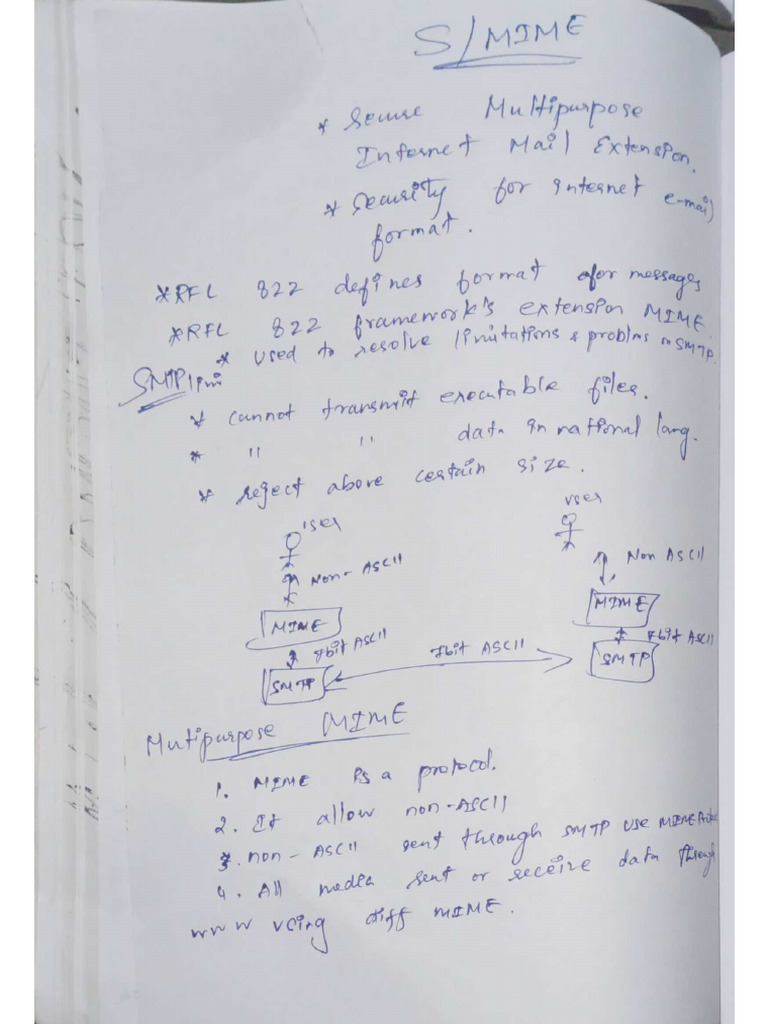 S/MIME
* Secure Multipurpose
Internet Mail Extension.
* Security for internet e-mail
format.
*RFC 822 defines format for messages
*RFC 822 framework's extension MIME.
* used to resolve limitations & problms in SMTP.
SMTP lim
* cannot transmit executable files.
* " " data in national lang.
* reject above certain size.
user user
Non-ASCII Non ASCII
MIME MIME
7bit ASCII 7bit ASCII 7bit ASCII
SMTP SMTP
Mutipurpose (MIME
1. MIME is a protocol.
2. It allow non-ASCII
3. non-ASCII sent through SMTP use MIME
4. All media sent or receive data through
www using diff MIME.